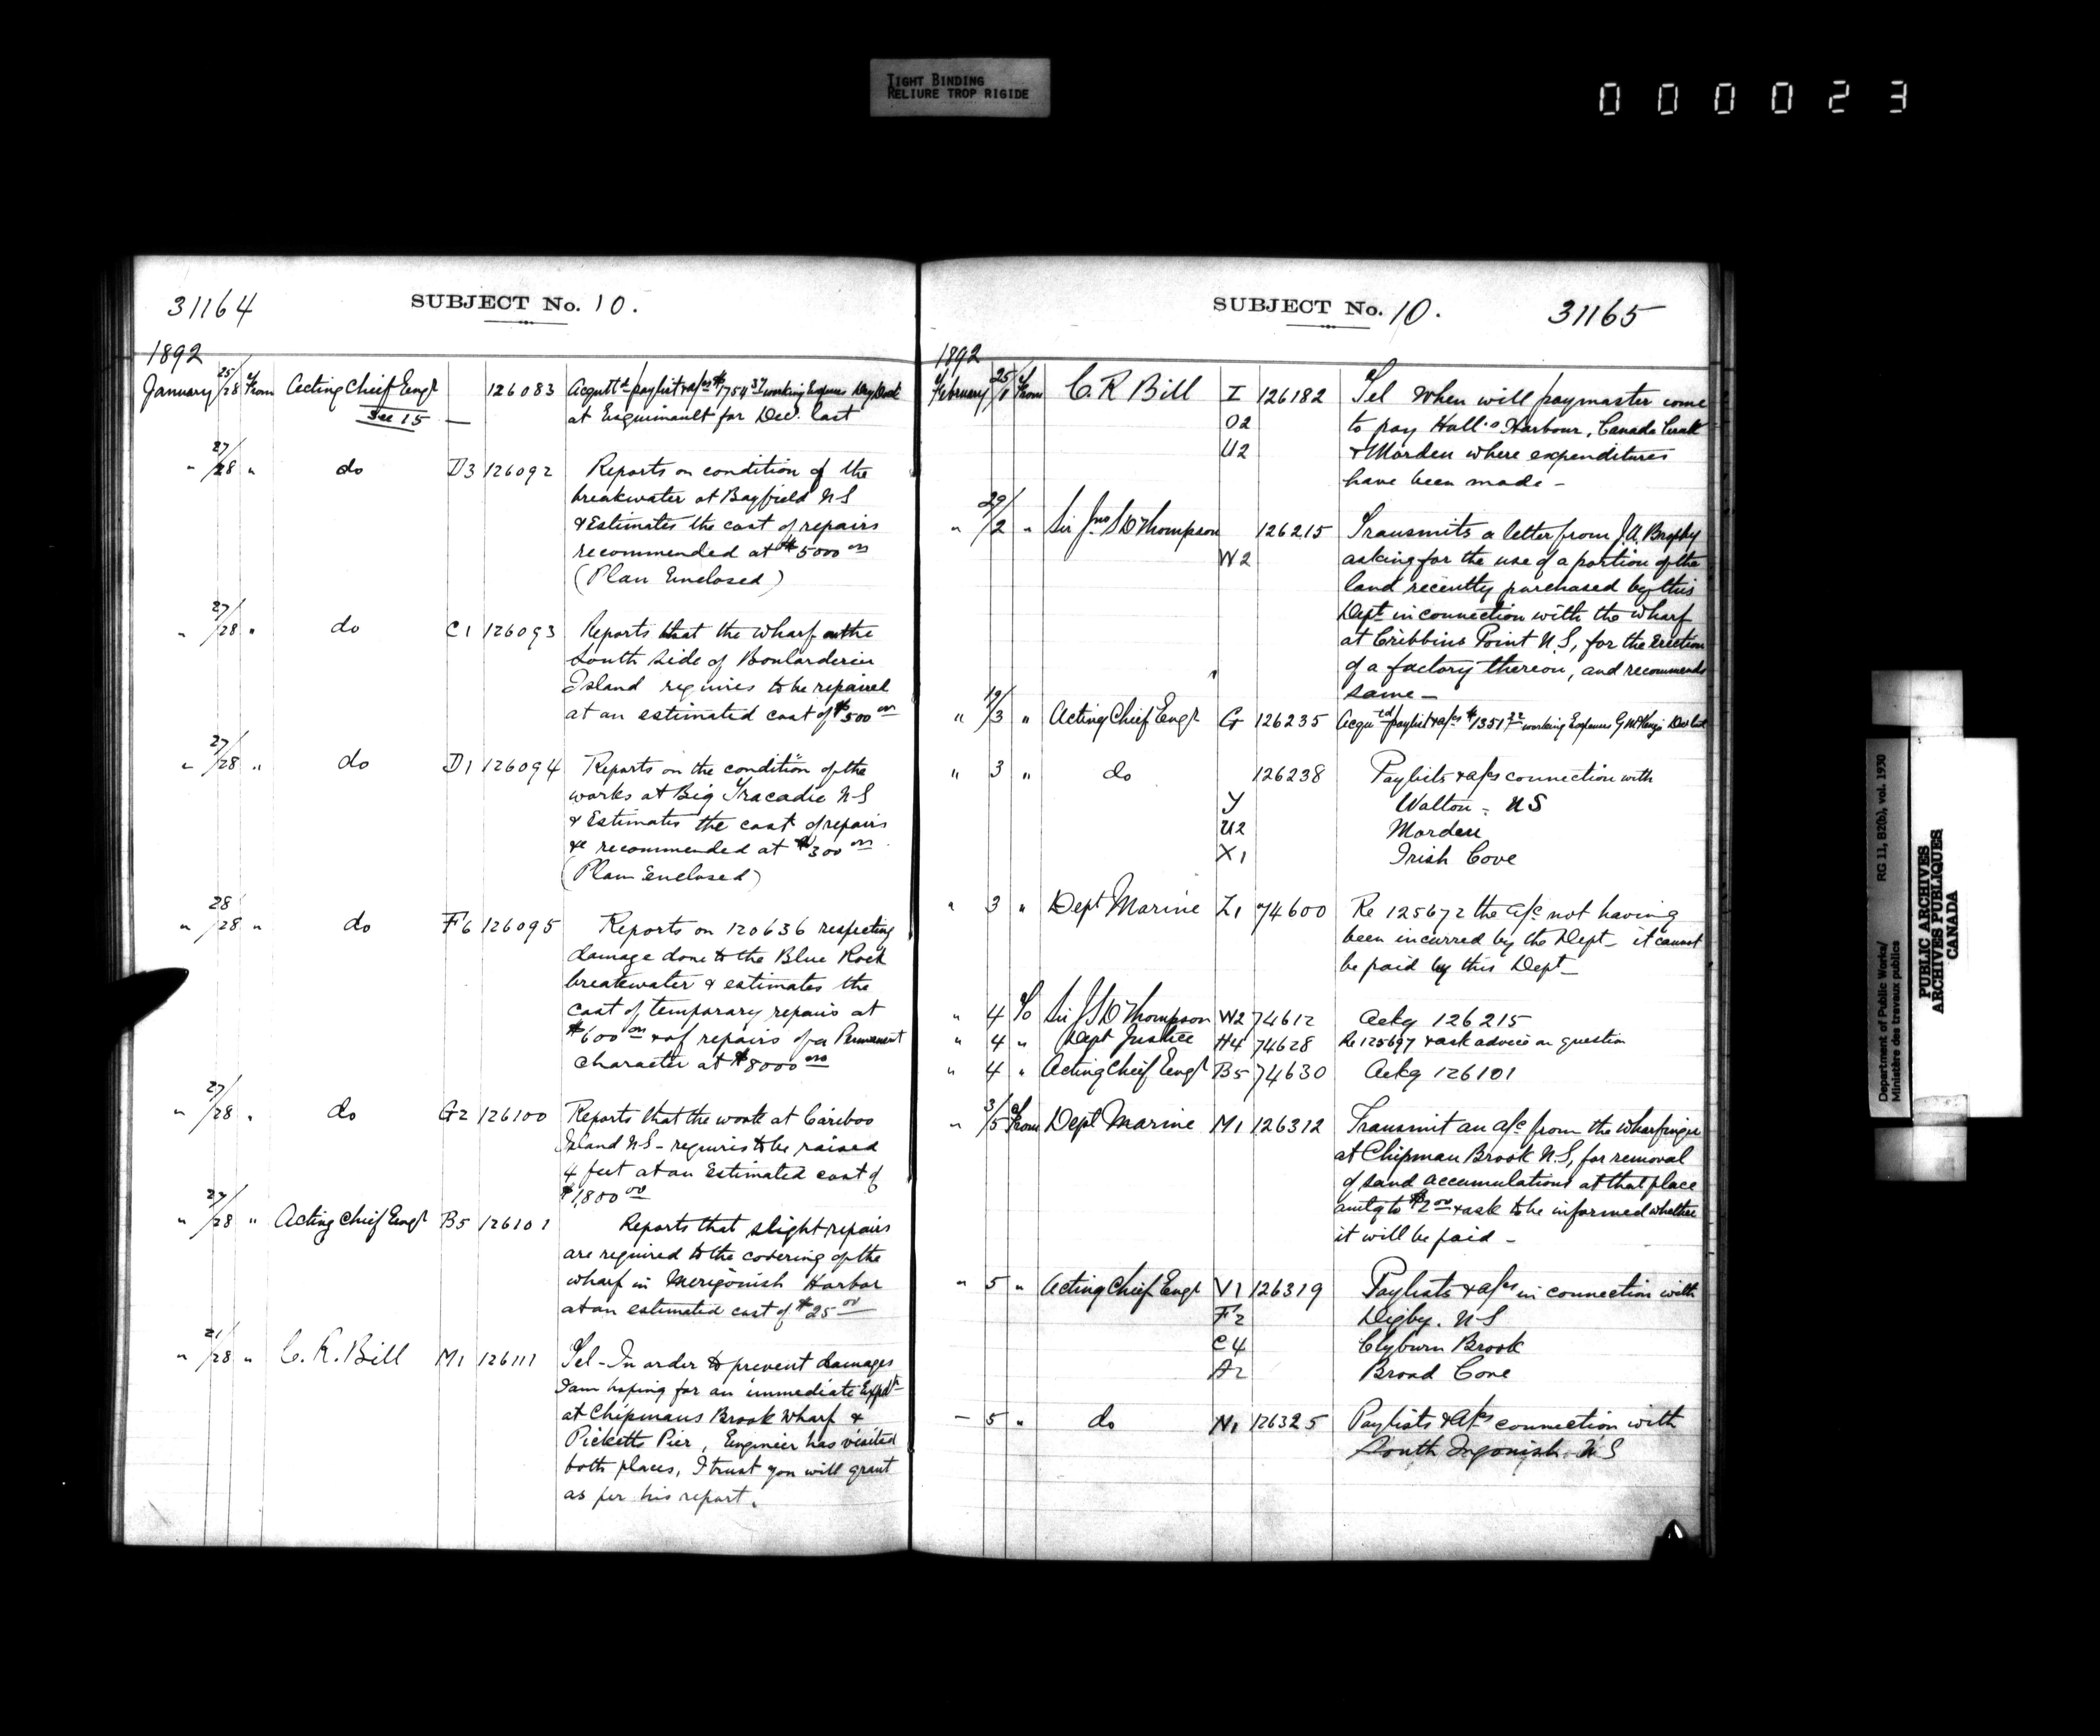 TIGHT BINDING
RELIURE TROP RIGIDE
000023
31164 SUBJECT No. 10.
1892
January 25/28 From Acting Chief Engr 126083 Acqutt'd paylist & a/cs $1754 37 working Expenses Dry Dock
See 15 — at Esquimault for Dec. last
" 27/28 " do D3 126092 Reports on condition of the
breakwater at Bayfield NS
& Estimates the cost of repairs
recommended at $5000 00
(Plan Enclosed)
" 27/28 " do C1 126093 Reports that the wharf on the
South Side of Boularderie
Island requires to be repaired
at an estimated cost of $500 00
" 27/28 " do D1 126094 Reports on the condition of the
works at Big Tracadie NS
& Estimates the cost of repairs
&c recommended at $300 00
(Plan Enclosed)
" 28/28 " do F6 126095 Reports on 120636 respecting
damage done to the Blue Rock
breakwater & estimates the
cost of temporary repairs at
$600 00 & of repairs of a Permanent
character at $8000 00
" 27/28 " do G2 126100 Reports that the work at Cariboo
Island NS - requires to be raised
4 feet at an Estimated cost of
$1,800 00
" 27/28 " Acting Chief Engr B5 126101 Reports that slight repairs
are required to the covering of the
wharf in Merigonish Harbor
at an estimated cost of $25 00
" 21/28 " C. R. Bill M1 126111 Tel - In order to prevent damages
I am hoping for an immediate Expdt
at Chipmans Brook Wharf &
Picketts Pier, Engineer has visited
both places, I trust you will grant
as per his report.
SUBJECT No. 10. 31165
1892
February 25/1 From C. R Bill I 126182 Tel When will paymaster come
O2 to pay Hall's Harbour, Canada Creek
U2 & Morden where expenditures
have been made -
" 29/2 " Sir Jno S D Thompson 126215 Transmits a letter from J.A. Brophy
W2 asking for the use of a portion of the
land recently purchased by this
Dept in connection with the wharf
at Cribbins Point N.S, for the Erection
of a factory thereon, and recommends
same -
" 19/3 " Acting Chief Engr G 126235 Acqutd paylist & a/cs $1351 working Expenses Dec last
" 3 " do 126238 Paylists & a/cs connection with
Y Walton - NS
U2 Morden
X1 Irish Cove
" 3 " Dept Marine Z1 74600 Re 125672 the a/c not having
been incurred by the Dept - it cannot
be paid by this Dept -
" 4 To Sir J S D Thompson W2 74612 Ackg 126215
" 4 " Dept Justice H4 74628 Re 125697 & ask advice on question
" 4 " Acting Chief Engr B5 74630 Ackg 126101
" 3/5 From Dept Marine M1 126312 Transmit an a/c from the wharfinger
at Chipman Brook N.S, for removal
of sand accumulations at that place
amtg to $2 00 & ask to be informed whether
it will be paid -
" 5 " Acting Chief Engr V1 126319 Paylists & a/cs in connection with
F2 Digby. NS
C4 Clyburn Brook
A2 Broad Cove
— 5 " do N1 126325 Paylists & A/cs connection with
South Ingonish. NS
Department of Public Works/
Ministère des travaux publics
RG 11, B2(b), vol. 1930
PUBLIC ARCHIVES
ARCHIVES PUBLIQUES
CANADA